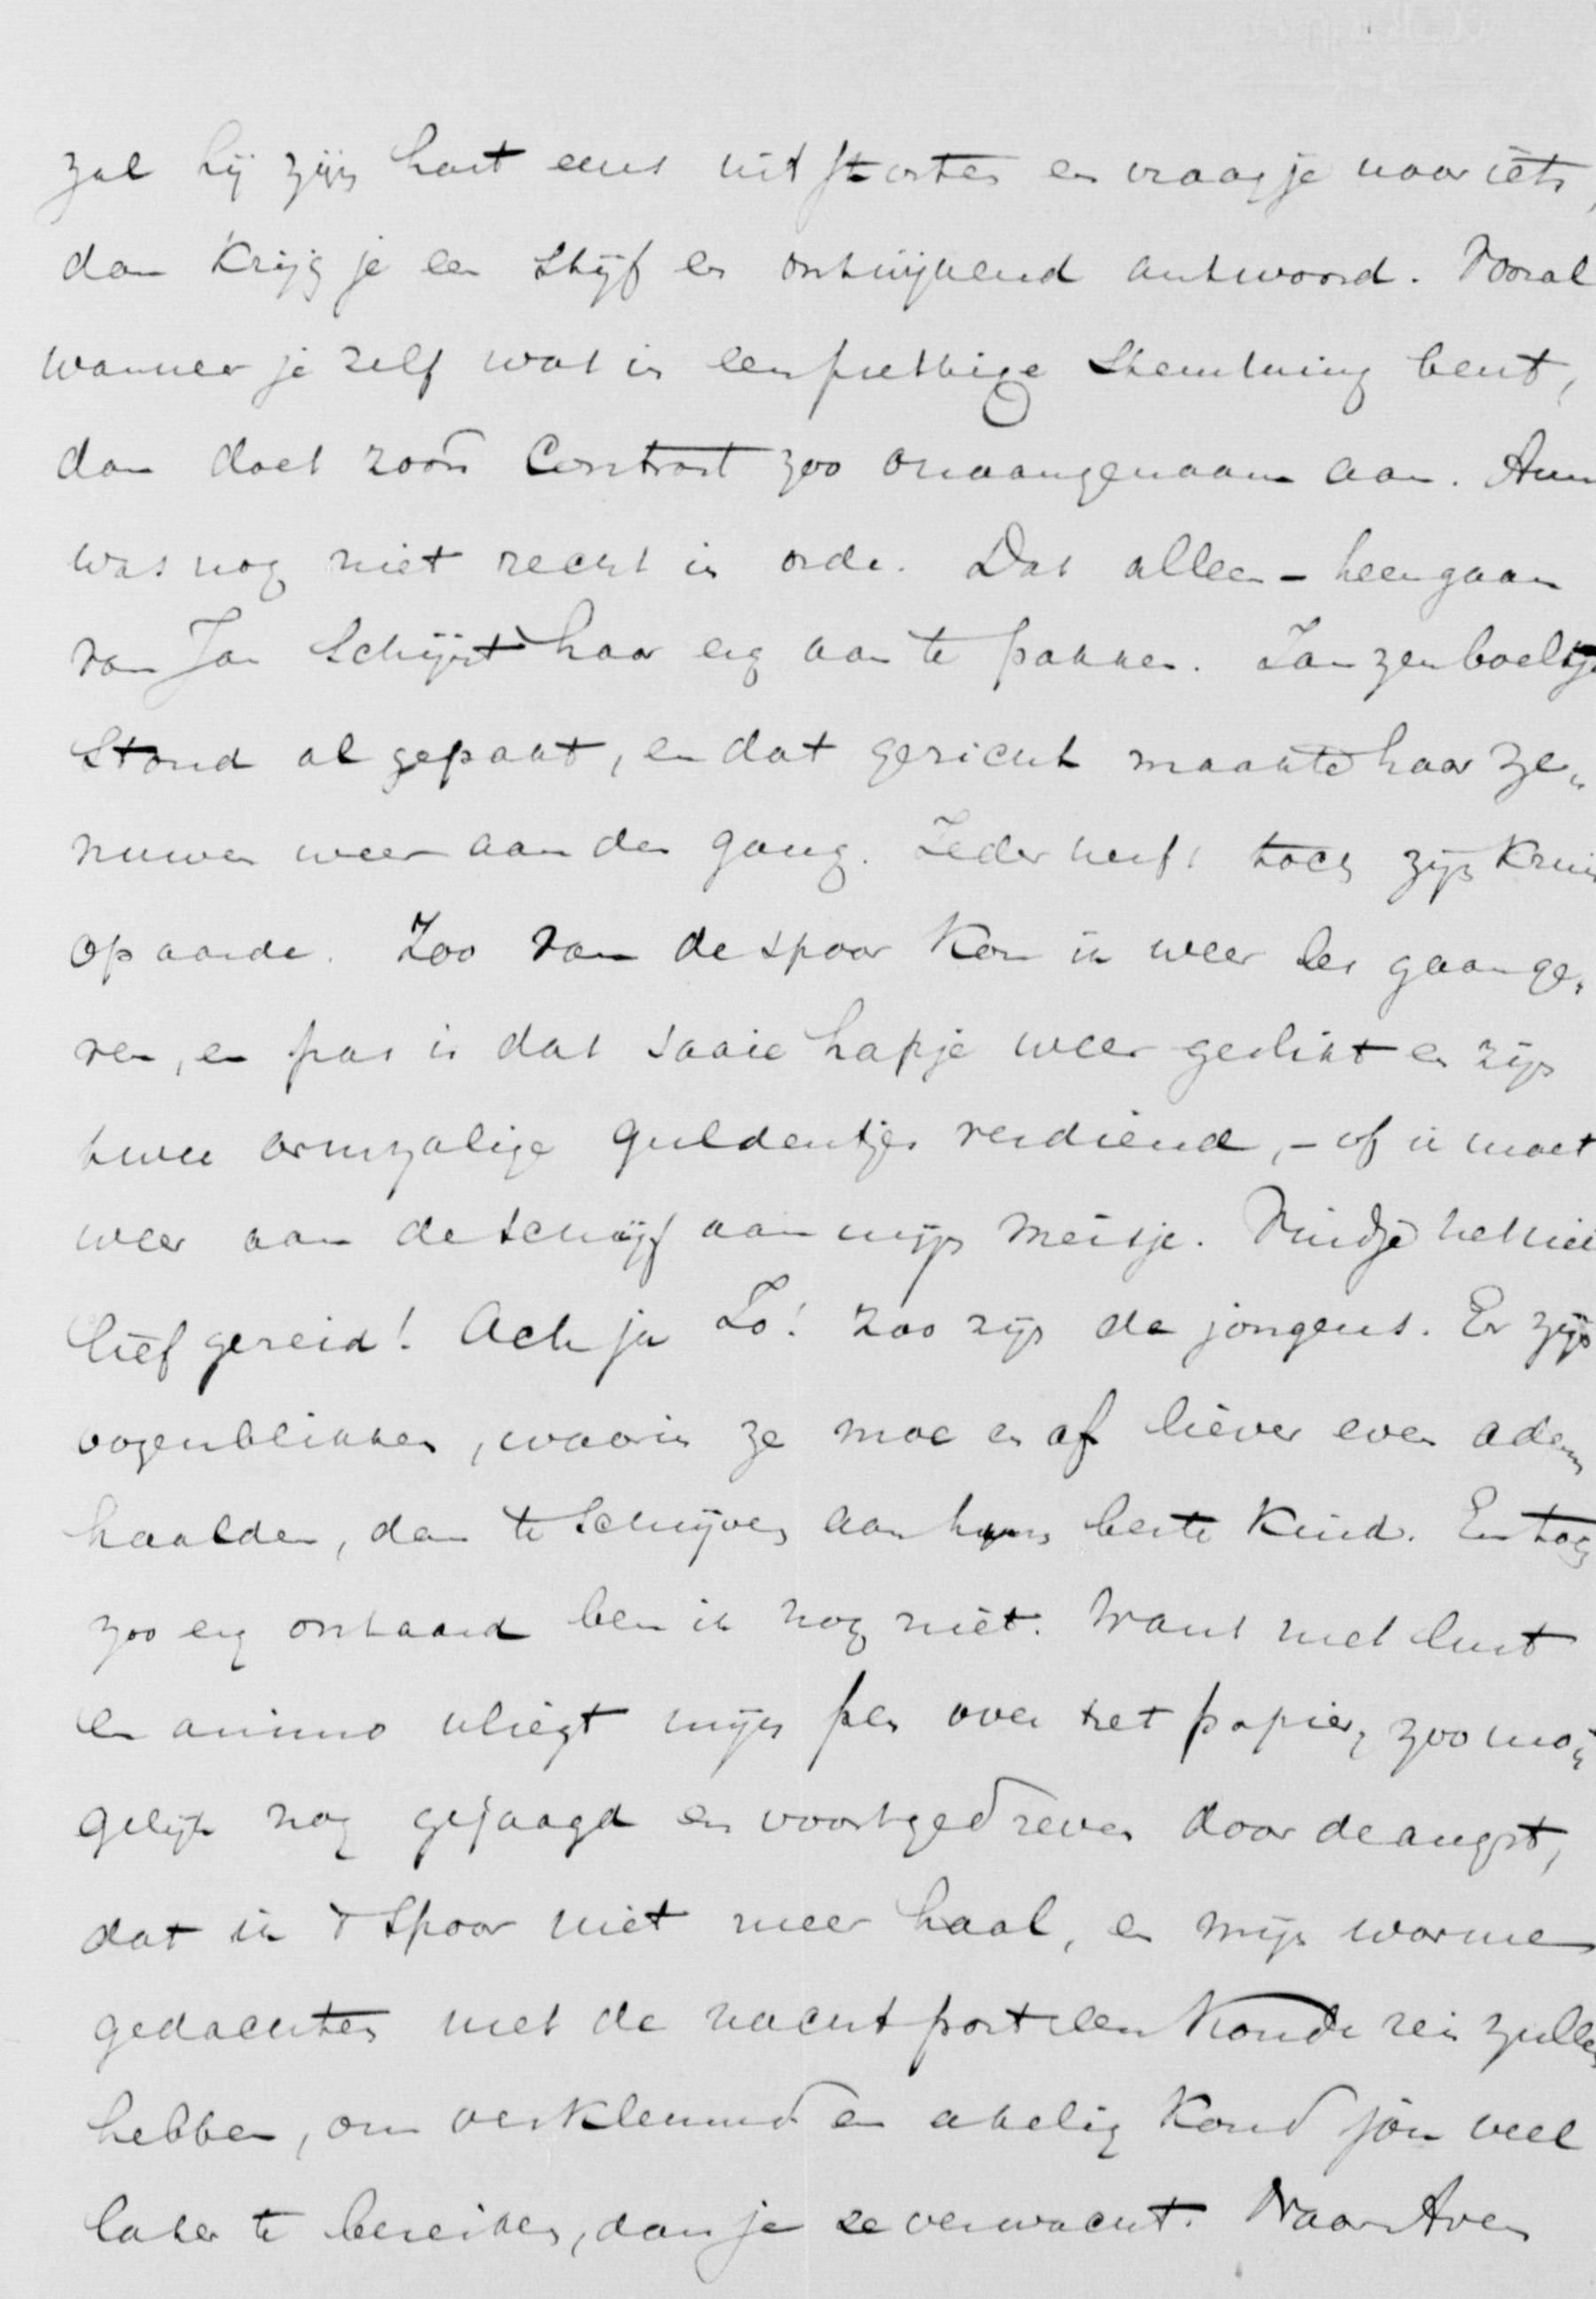 zal hij zijn hart eens uitstorten en vraag je naar iets,
dan krijg je een stijf en ontwijkend antwoord. Vooral
wanneer je zelf wat in een prettige stemming bent,
dan doet zoo'n contrast zoo onaangenaam aan. Ann
was nog niet recht in orde. Dat alleen-heengaan
van Jan schijnt haar erg aan te pakken. Jan zen boeltje
stond al gepakt, en dat gezicht maakte haar ze„
nuwen weer aan den gang. Ieder heeft toch zijn kruis
op aarde. Zoo van de spoor kon ik weer les gaan ge„
ven, en pas is dat saaie hapje weer geslikt en zijn
twee armzalige guldentjes verdiend, - of ik moet
weer aan de schrijf aan mijn meisje. Vind je het niet
lief gezeid! Ach ja Lo! zoo zijn de jongens. Er zijn
oogenblikken, waarin ze moe en af liever even adem
haalden, dan te schrijven aan hun beste kind. En toch
zoo erg ontaard ben ik nog niet. Want met lust
en animo vliegt mijn pen over het papier, zoo mo„
gelijk nog gejaagd en voortgedreven door de angst,
dat ik 't spoor niet meer haal, en mijn warme
gedachten met de nachtpost een koude reis zullen
hebben, om verkleumd en akelig koud jou veel
later te bereiken, dan je ze verwacht. Naar Aren